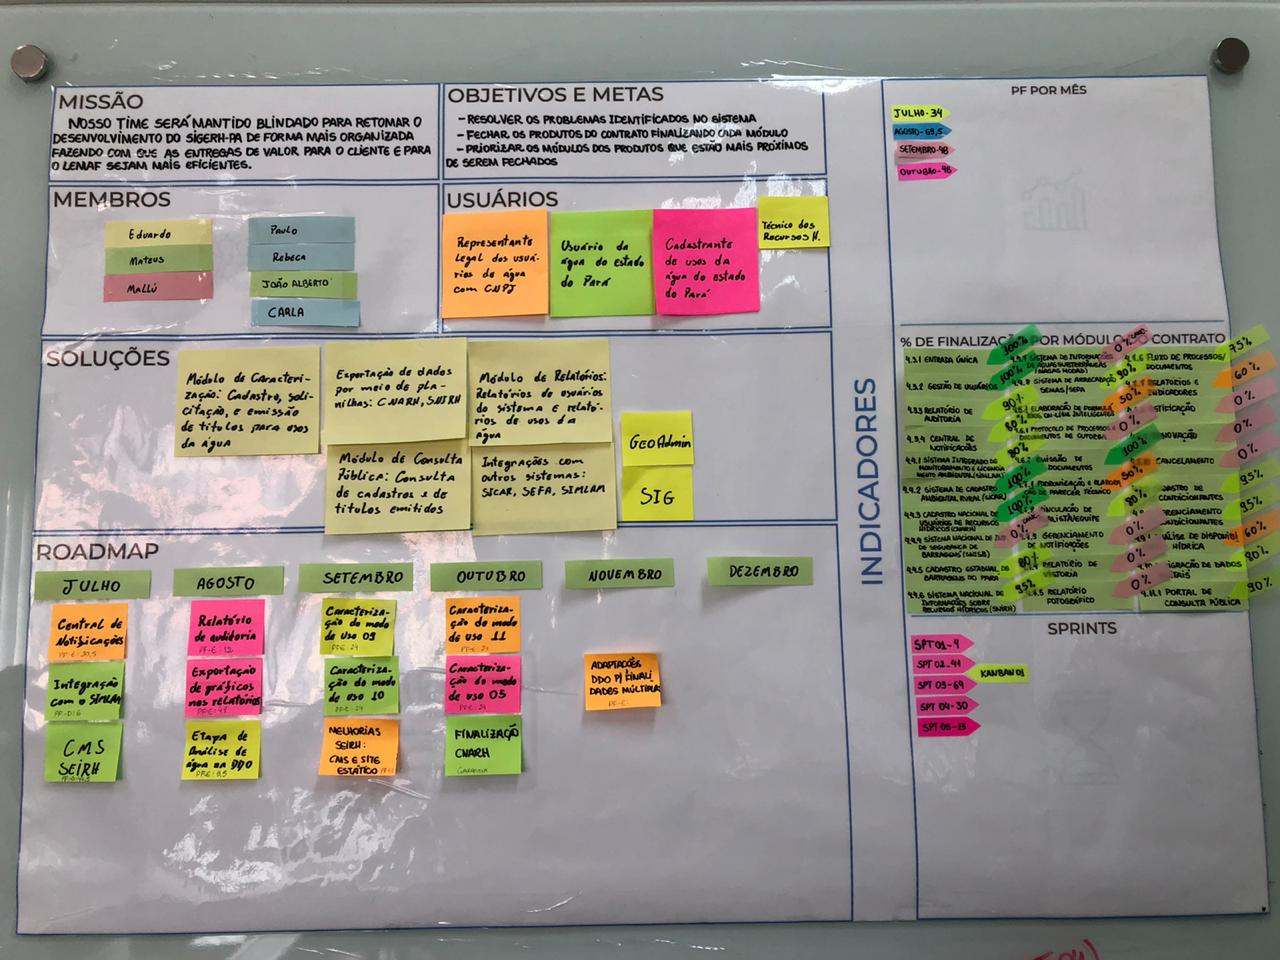 MISSÃO
NOSSO TIME SERÁ MANTIDO BLINDADO PARA RETOMAR O
DESENVOLVIMENTO DO SIGERH-PA DE FORMA MAIS ORGANIZADA
FAZENDO COM QUE AS ENTREGAS DE VALOR PARA O CLIENTE E PARA
O LEMAF SEJAM MAIS EFICIENTES.
OBJETIVOS E METAS
- RESOLVER OS PROBLEMAS IDENTIFICADOS NO SISTEMA
- FECHAR OS PRODUTOS DO CONTRATO FINALIZANDO CADA MÓDULO
- PRIORIZAR OS MÓDULOS DOS PRODUTOS QUE ESTÃO MAIS PRÓXIMOS
DE SEREM FECHADOS
MEMBROS
Eduardo
Mateus
Mallú
Paulo
Rebeca
JOÃO ALBERTO
CARLA
USUÁRIOS
Representante
Legal dos usuá-
rios de água
com CNPJ
Usuário da
água do Estado
do Pará
Cadastrante
de usos da
água do estado
do Pará
Técnico dos
Recursos H.
SOLUÇÕES
Módulo de Caracteri-
zação: Cadastro, soli-
citação, e emissão
de títulos para usos
da água
Exportação de dados
por meio de pla-
nilhas: CNARH, SNIRH
Módulo de Relatórios:
Relatórios de usuários
do sistema e relató-
rios de usos da
água
Módulo de Consulta
Pública: Consulta
de cadastros e de
títulos emitidos
Integrações com
outros sistemas:
SICAR, SEFA, SIMLAM
GeoAdmin
SIG
ROADMAP
JULHO
AGOSTO
SETEMBRO
OUTUBRO
NOVEMBRO
DEZEMBRO
Central de
Notificações
Integração
com o SIMLAM
CMS
SEIRH
Relatório
de auditoria
PF-E: 12
Exportação
de gráficos
nos relatórios
Etapa de
Análise de
água na DDO
PF-E: 9,5
Caracteriza-
ção do modo
de uso 09
Caracteriza-
ção do modo
de uso 10
MELHORIAS
SEIRH:
CMS E SITE
ESTÁTICO
Caracteriza-
ção do modo
de uso 11
Caracteriza-
ção do modo
de uso 05
FINALIZAÇÃO
CNARH
GARANTIA
ADAPTAÇÕES
DDO P/ FINALI
DADES MÚLTIPLAS
INDICADORES
PF POR MÊS
JULHO-34
AGOSTO-69,5
SETEMBRO-48
OUTUBRO-48
% DE FINALIZAÇÃO POR MÓDULO DO CONTRATO
4.3.1 ENTRADA ÚNICA
100%
4.3.2 GESTÃO DE USUÁRIOS
100%
4.3.3 RELATÓRIO DE
AUDITORIA
90%
4.3.4 CENTRAL DE
NOTIFICAÇÕES
80%
4.4.1 SISTEMA INTEGRADO DE
MONITORAMENTO E LICENCIA
MENTO AMBIENTAL (SIMLAM)
4.4.2 SISTEMA DE CADASTRO
AMBIENTAL RURAL (SICAR)
100%
4.4.3 CADASTRO NACIONAL DE
USUÁRIOS DE RECURSOS
HÍDRICOS (CNARH)
100%
4.4.4 SISTEMA NACIONAL DE
DE SEGURANÇA DE
BARRAGENS (SNISB)
4.4.5 CADASTRO ESTADUAL DE
BARRAGENS DO PARÁ
80%
4.4.6 SISTEMA NACIONAL DE
INFORMAÇÕES SOBRE
RECURSOS HÍDRICOS (SNIRH)
95%
SISTEMA DE INFORMAÇÕES
DE ÁGUAS SUBTERRÂNEAS
0%
SISTEMA DE ARRECADAÇÃO
SEMAS/SEFA
90%
ELABORAÇÃO DE FORMULÁ
RIOS ON-LINE INTELIGENTES
50%
PROTOCOLO DE PROCESSOS E
DOCUMENTOS DE OUTORGA
EMISSÃO DE
DOCUMENTOS
100%
PADRONIZAÇÃO E ELABORA
ÇÃO DE PARECER TÉCNICO
50%
VINCULAÇÃO DE
ANALISTA/EQUIPE
80%
GERENCIAMENTO
DE NOTIFICAÇÕES
0%
RELATÓRIO DE
VISTORIA
0%
RELATÓRIO
FOTOGRÁFICO
0%
FLUXO DE PROCESSOS/
DOCUMENTOS
75%
RELATÓRIOS E
INDICADORES
60%
0%
RENOVAÇÃO
0%
CANCELAMENTO
0%
CADASTRO DE
CONDICIONANTES
95%
GERENCIAMENTO
CONDICIONANTES
95%
ANÁLISE DE DISPONIBI
HÍDRICA
60%
MIGRAÇÃO DE DADOS
80%
4.11.1 PORTAL DE
CONSULTA PÚBLICA
90%
SPRINTS
SPT 01-4
SPT 02-41
KANBAN 01
SPT 03-64
SPT 04-30
SPT 05-13